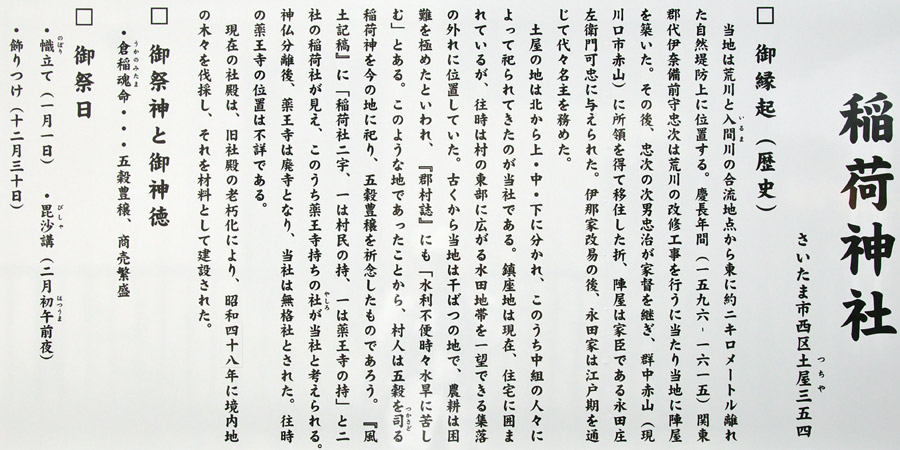 稲荷神社
さいたま市西区土屋三五四
つちや
□ 御縁起（歴史）
当地は荒川と入間川の合流地点から東に約二キロメートル離れ
いるま
た自然堤防上に位置する。慶長年間（一五九六-一六一五）関東
郡代伊奈備前守忠次は荒川の改修工事を行うに当たり当地に陣屋
を築いた。その後、忠次の次男忠治が家督を継ぎ、群中赤山（現
川口市赤山）に所領を得て移住した折、陣屋は家臣である永田庄
左衛門可忠に与えられた。伊那家改易の後、永田家は江戸期を通
じて代々名主を務めた。
土屋の地は北から上・中・下に分かれ、このうち中組の人々に
よって祀られてきたのが当社である。鎮座地は現在、住宅に囲ま
れているが、往時は村の東部に広がる水田地帯を一望できる集落
の外れに位置していた。古くから当地は干ばつの地で、農耕は困
難を極めたといわれ、『郡村誌』にも「水利不便時々水旱に苦し
む」とある。このような地であったことから、村人は五穀を司る
つかさど
稲荷神を今の地に祀り、五穀豊穣を祈念したものであろう。『風
土記稿』に「稲荷社二宇、一は村民の持、一は薬王寺の持」と二
社の稲荷社が見え、このうち薬王寺持ちの社が当社と考えられる。
やしろ
神仏分離後、薬王寺は廃寺となり、当社は無格社とされた。往時
の薬王寺の位置は不詳である。
現在の社殿は、旧社殿の老朽化により、昭和四十八年に境内地
の木々を伐採し、それを材料として建設された。
□ 御祭神と御神徳
・倉稲魂命・・・五穀豊穣、商売繁盛
うかのみたま
□ 御祭日
・幟立て（一月一日） ・毘沙講（二月初午前夜）
のぼり びしゃ はつうま
・飾りつけ（十二月三十日）